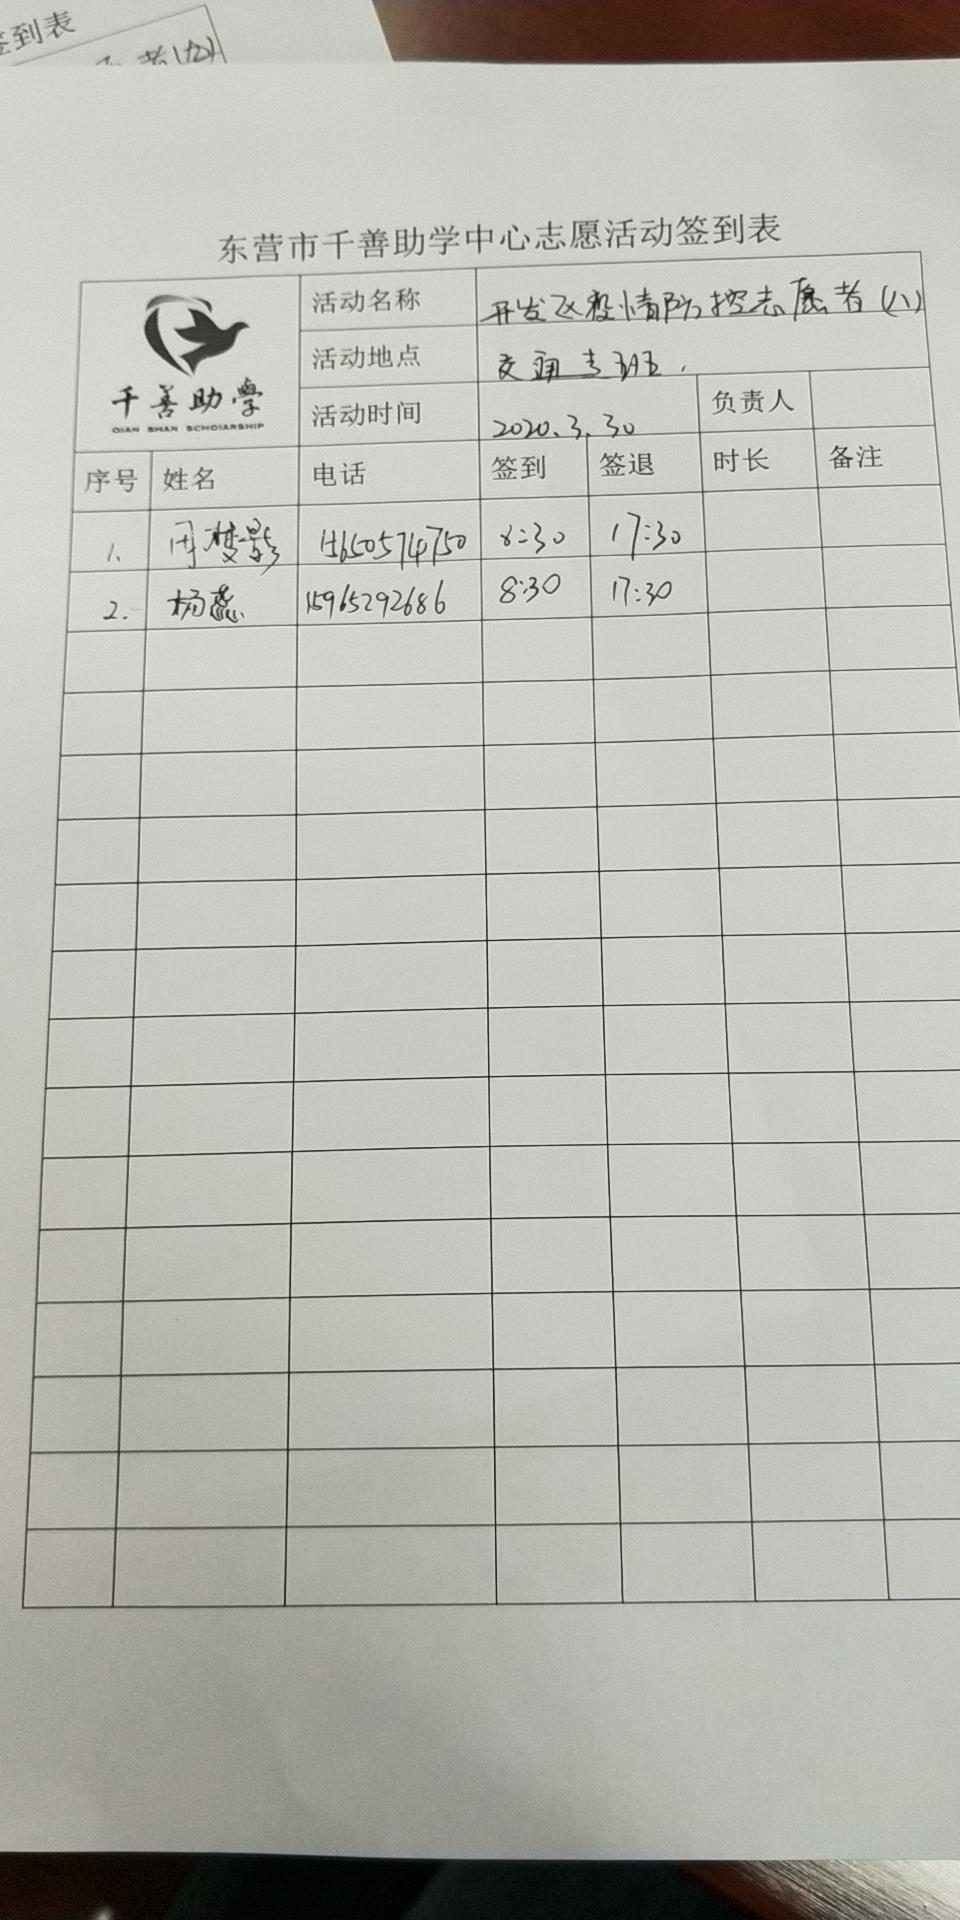 签到表
东营市千善助学中心志愿活动签到表
千善助学
QIAN SHAN SCHOLARSHIP
活动名称 开发区疫情防控志愿者(八)
活动地点 交通专班.
活动时间 2020.3.30 负责人
序号 姓名 电话 签到 签退 时长 备注
1. 周梦影 15650574750 8:30 17:30
2. 杨蕊 15965292686 8:30 17:30